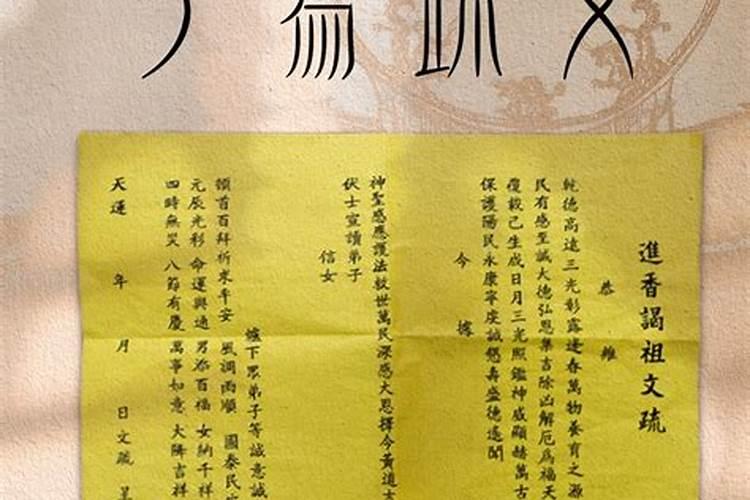 寫疏文
進香謁祖文疏
恭維
乾德高遠三光彰露逢春萬物養育之源
民有感至誠大德弘恩集吉除凶解厄為福天
覆載己生成日月三光照鑑神威顯赫萬古
保護陽民永康寧虔誠懇壽盛德遙聞
今據
神聖感應護法救世萬民深感大恩擇今黃道吉
伏士宣讀弟子
信女
爐下眾弟子等誠意誠
頓首百拜祈求平安 風調雨順 國泰民
元辰光彩 命運興通 男添百福 女納千祥
四時無災 八節有慶 萬事如意 大降吉祥
天運 年 月 日文疏